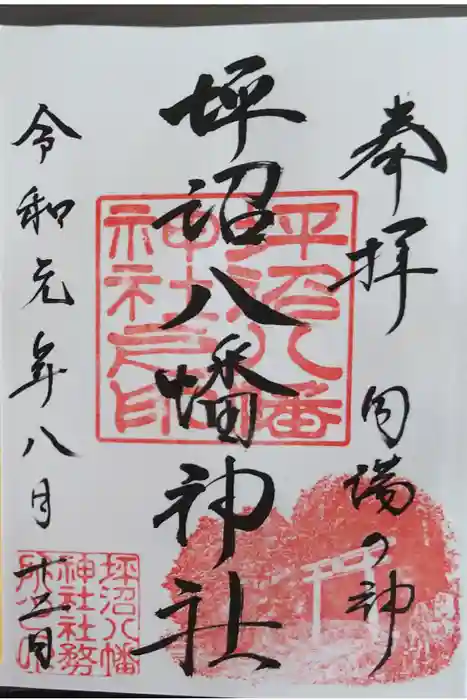 奉拝
の神
坪沼八幡神社
令和元年八月
坪沼八幡
神社之印
坪沼八幡
神社社務
所之印